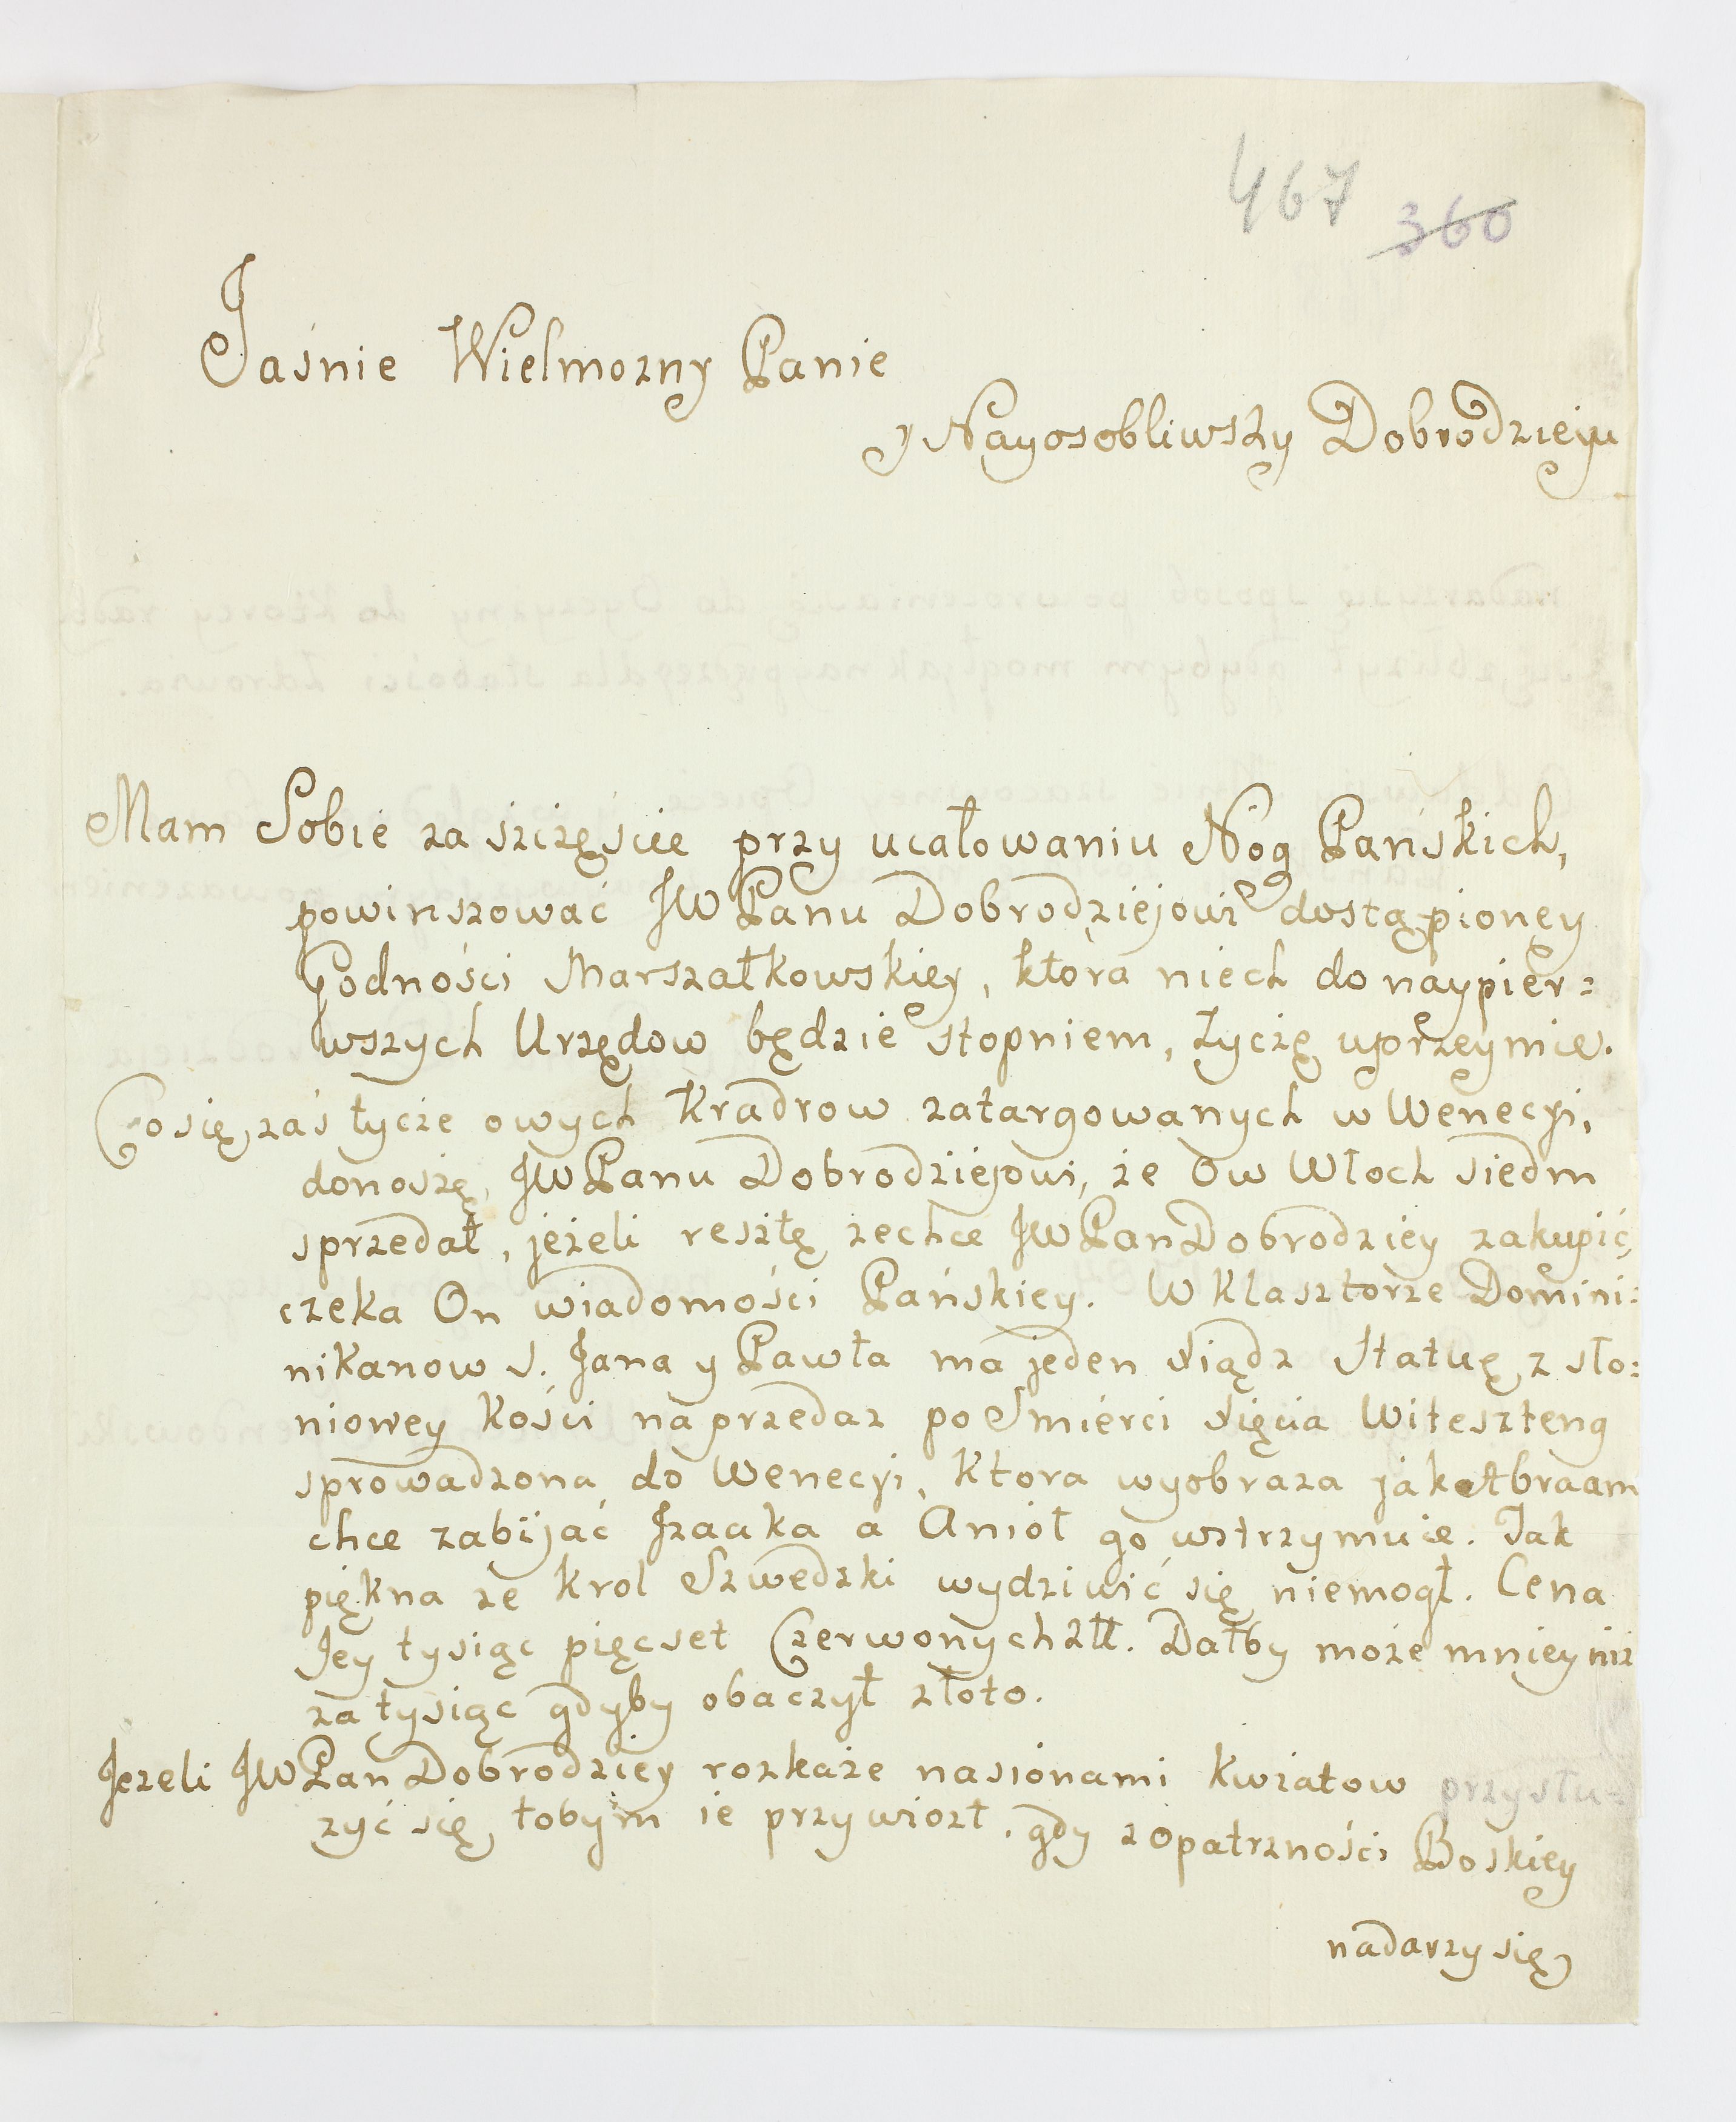 467 360
Jaśnie Wielmozny Panie
y Nayosobliwszy Dobrodzieju
Mam Sobie za szczęscie przy ucałowaniu Nóg Pańskich,
powinszować JW Panu Dobrodziejowi dostąpioney
Godności Marszałkowskiey, która niech do naypier=
wszych Urzędow będzie stopniem, życzę uprzeymie.
Co się zaś tycze owych Kradrow zatargowanych w Wenecyi,
donoszę JW Panu Dobrodziejowi, że Ow Włoch siedm
sprzedał, jeżeli resztę zechce JW Pan Dobrodziey zakupić,
czeka On wiadomości Pańskiey. W Klasztorze Domini=
nikanow S. Jana y Pawła ma jeden Siądz Statuę z sło=
niowey Kości na przedaz po Smierci Sięcia Witeszteng
sprowadzona do Wenecyi, Ktora wyobraza jak Abraam
chce zabijać Izaaka a Anioł go wstrzymuie. Tak
piękna ze Krol Szwedzki wydziwić się niemogł. Cena
Jey tysiąc pięcset Czerwonych złł. Dałby może mniey niz
za tysiąc gdyby obaczył złoto.
Jezeli JW Pan Dobrodziey rozkaże nasionami Kwiatow przysłu=
zyć się, tobym ie przywiozł, gdy z Opatrzności Boskiey
nadarzy się